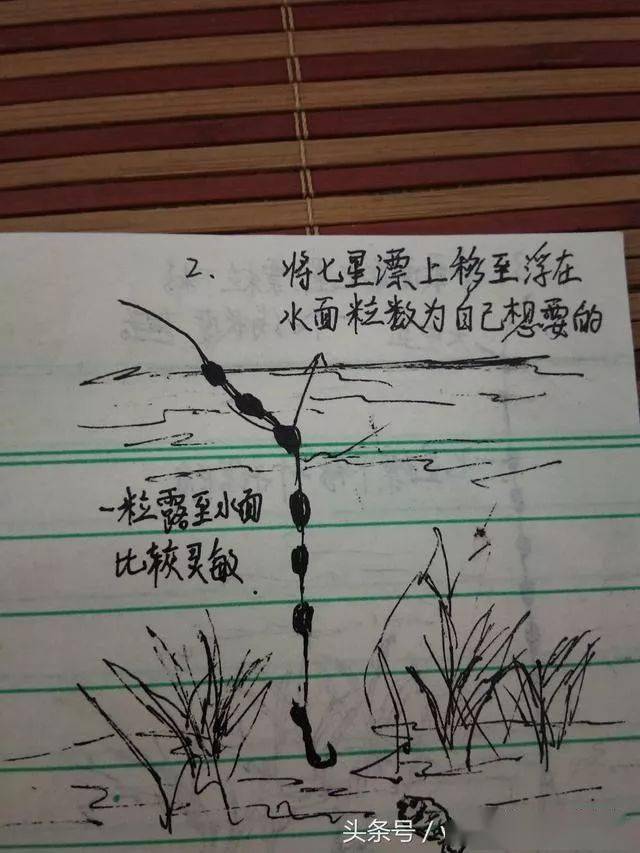 2. 将七星漂上移至浮在
水面粒数为自己想要的
一粒露至水面
比较灵敏.
头条号/